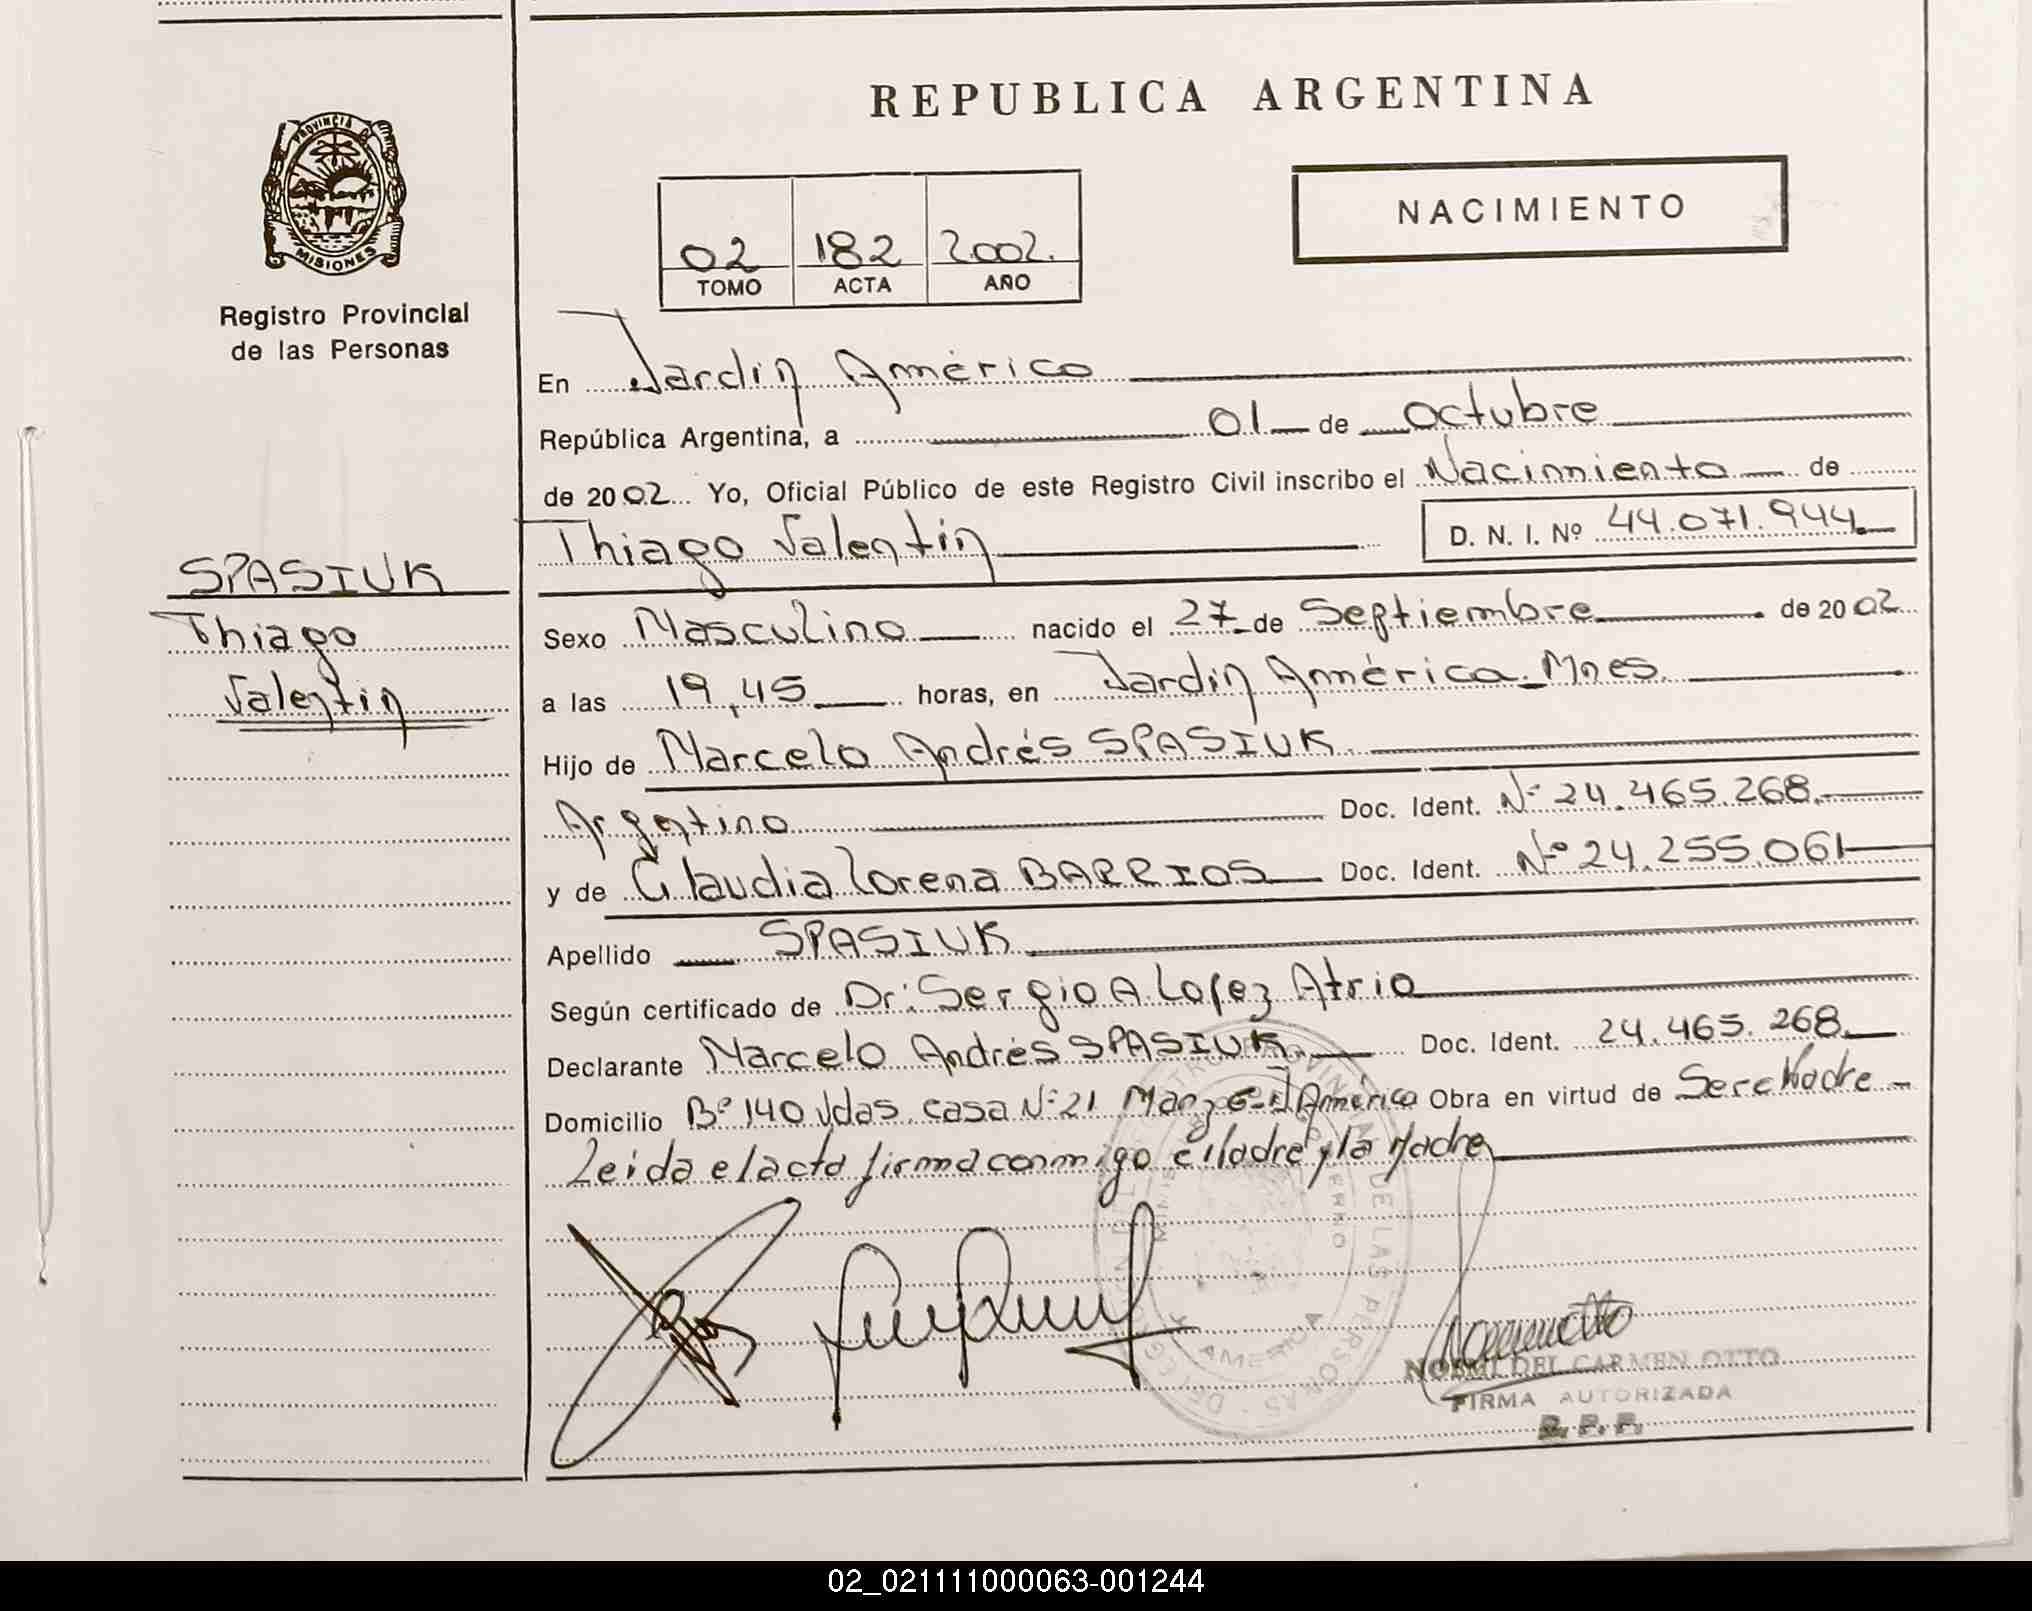 REPUBLICA ARGENTINA
PROVINCIA DE
MISIONES
Registro Provincial
de las Personas
02 182 2002.
TOMO ACTA AÑO
NACIMIENTO
En Jardín América
República Argentina, a 01 de Octubre
de 2002 Yo, Oficial Público de este Registro Civil inscribo el Nacimiento de
Thiago Valentín D. N. I. Nº 44.071.944
SPASIUK
Thiago
Valentín
Sexo Masculino nacido el 27 de Septiembre de 2002
a las 19,45 horas, en Jardín América Mnes.
Hijo de Marcelo Andrés SPASIUK
Argentino Doc. Ident. Nº 24.465.268.
y de Claudia Lorena BARRIOS Doc. Ident. Nº 24.255.061
Apellido SPASIUK
Según certificado de Dr: Sergio A. Lopez Atrio
Declarante Marcelo Andrés SPASIUK Doc. Ident. 24.465.268.
Domicilio Bº 140 Vdas. casa Nº 21 Manz J América Obra en virtud de Ser el Padre
Leida el acta firma conmigo el Padre y la Madre
NOEMI DEL CARMEN OTTO
FIRMA AUTORIZADA
R. P. P.
02_021111000063-001244